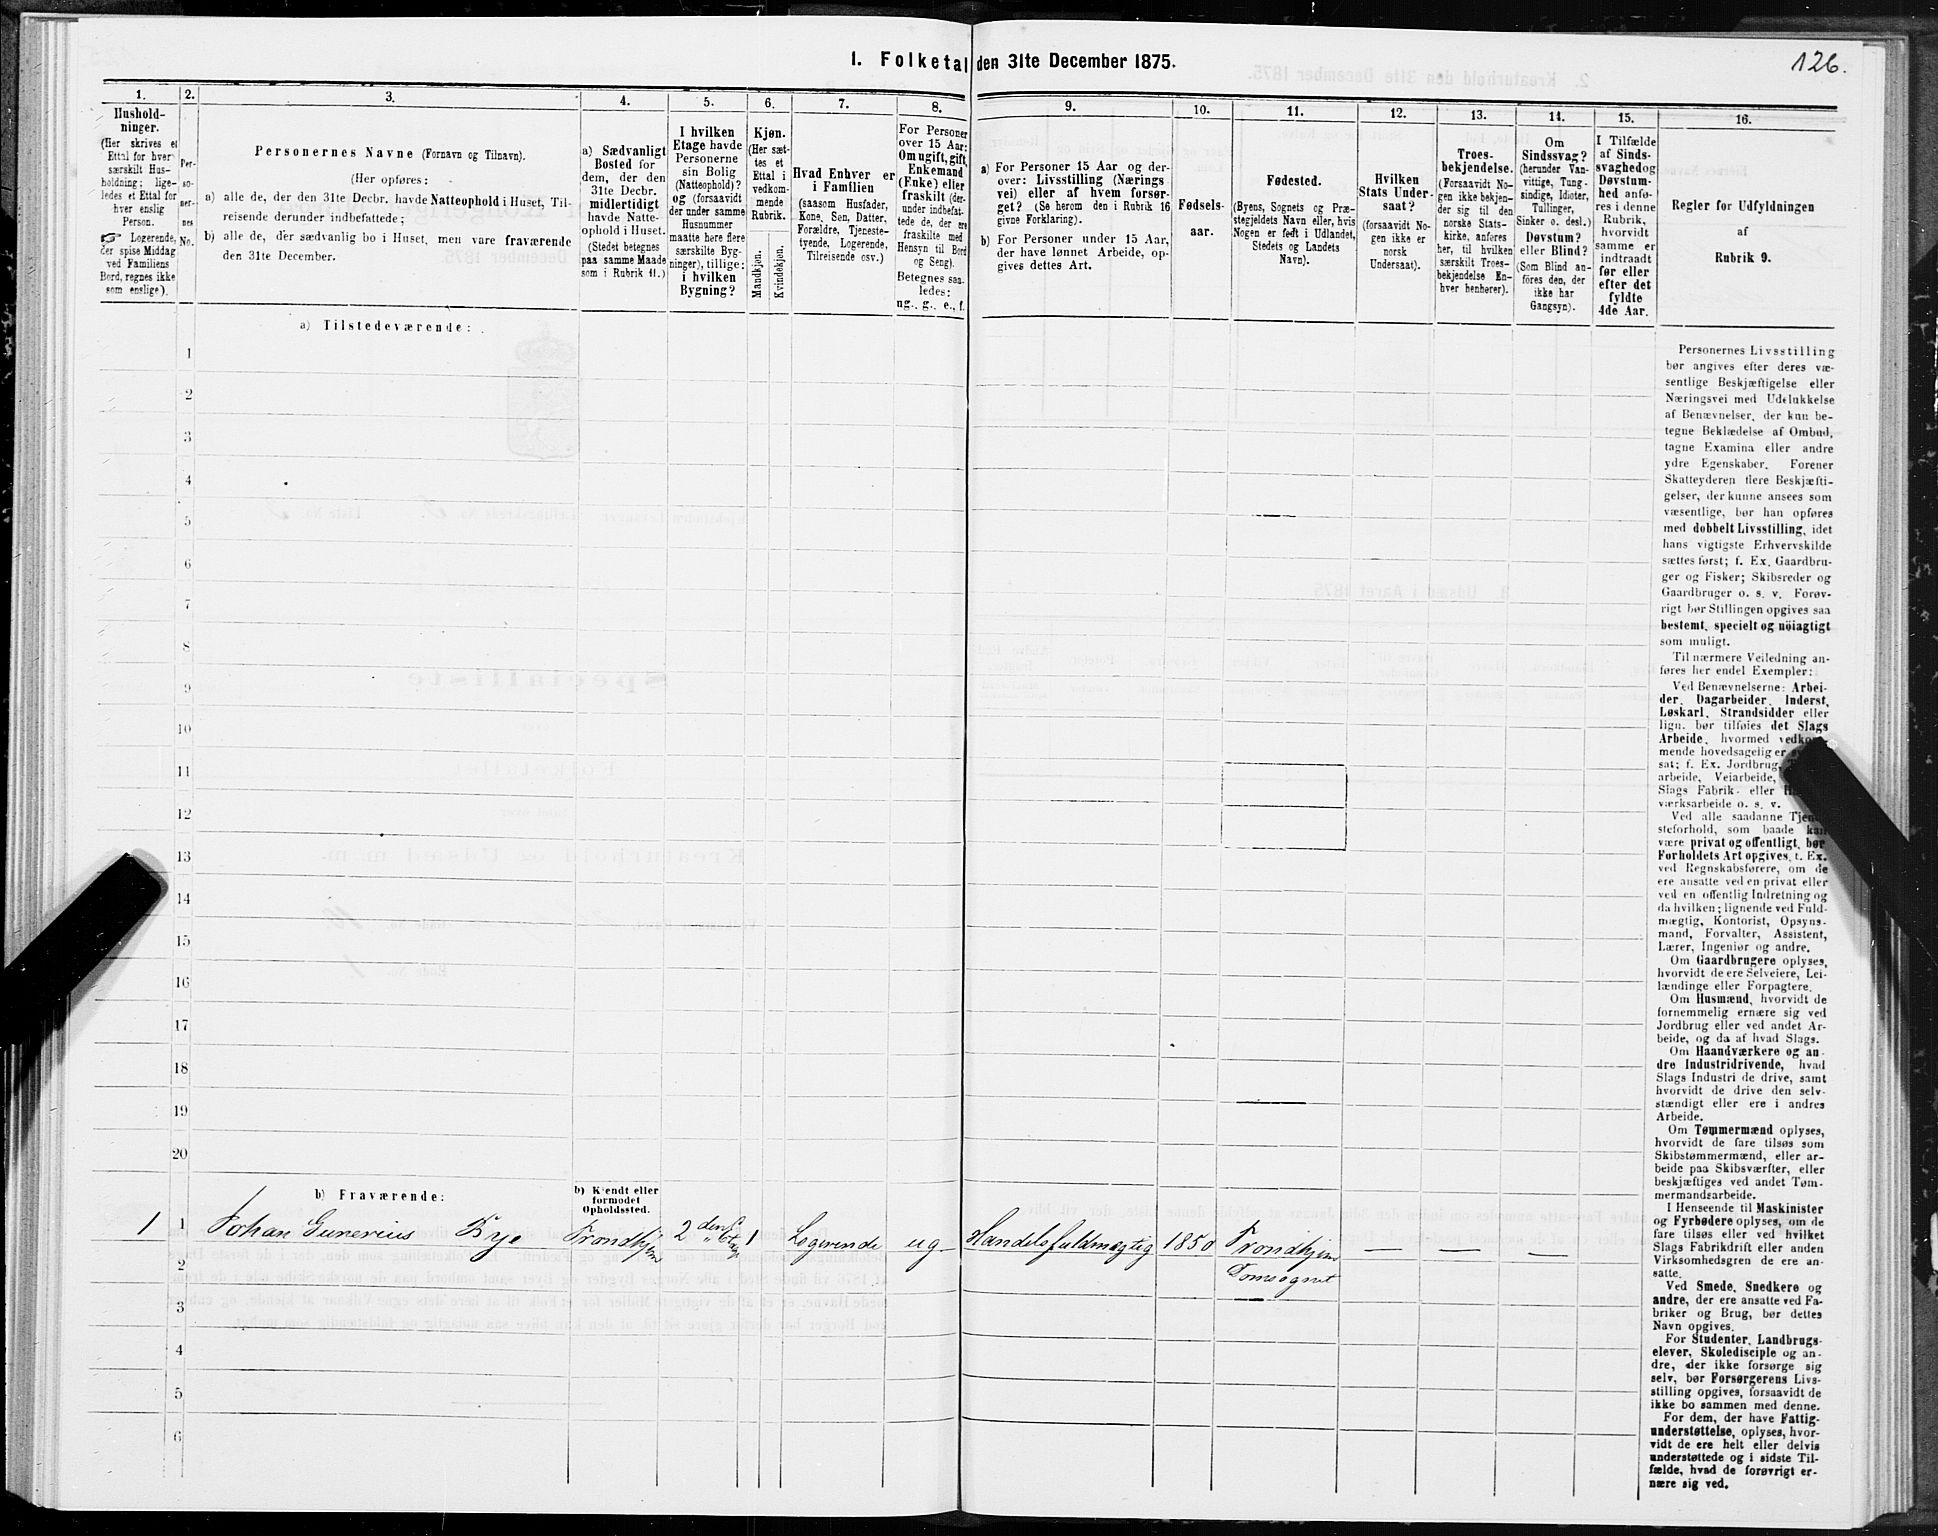 126.
1. Folketal den 31te December 1875.
1.
Hushold-
ninger.
(Her skrives et
Ettal for hver
særskilt Hus-
holdning; lige-
ledes et Ettal for
hver enslig
Person.
☞ Logerende,
der spise Middag
ved Familiens
Bord, regnes ikke
som enslige).
2.
Per-
so-
ner-
nes
No.
3.
Personernes Navne (Fornavn og Tilnavn).
(Her opføres:
a) alle de, der den 31te Decbr. havde Natteophold i Huset, Til-
reisende derunder indbefattede;
b) alle de, der sædvanlig bo i Huset, men vare fraværende
den 31te December.
4.
a) Sædvanligt
Bosted for
dem, der den
31te Decbr.
midlertidigt
havde Natte-
ophold i Huset.
(Stedet betegnes
paa samme Maade
som i Rubrik 11.)
5.
I hvilken
Etage havde
Personerne
sin Bolig
(Natteophold)?
og (forsaavidt
der under samme
Husnummer
maatte høre flere
særskilte Byg-
ninger), tillige:
i hvilken
Bygning?
6.
Kjøn.
(Her sæt-
tes et
Ettal i
vedkom-
mende
Rubrik.
Mandkjøn.
Kvindekjøn.
7.
Hvad Enhver er
i Familien
(saasom Husfader,
Kone, Søn, Datter,
Forældre, Tjeneste-
tyende, Logerende,
Tilreisende osv.)
8.
For Personer
over 15 Aar:
Om ugift, gift,
Enkemand
(Enke) eller
fraskilt (der-
under indbefat-
tede de, der ere
fraskilte med
Hensyn til Bord
og Seng).
Betegnes saa-
ledes:
ug., g., e., f.
9.
a) For Personer 15 Aar og der-
over: Livsstilling (Nærings
vei) eller af hvem forsør-
get? (Se herom den i Rubrik 16
givne Forklaring).
b) For Personer under 15 Aar,
der have lønnet Arbeide, op-
gives dettes Art.
10.
Fødsels-
aar.
11.
Fødested.
(Byens, Sognets og Præ-
stegjeldets Navn eller, hvis
Nogen er født i Udlandet,
Stedets og Landets
Navn).
12.
Hvilken
Stats Under-
saat?
(forsaavidt No-
gen ikke er
norsk
Undersaat).
13.
Troes-
bekjendelse.
(Forsaavidt No-
gen ikke bekjen-
der sig til den
norske Stats-
kirke, anføres
her, til hvilken
særskilt Troes-
bekjendelse En-
hver henhører).
14.
Om
Sindssvag?
(herunder Van-
vittige, Tung-
sindige, Idioter,
Tullinger,
Sinker o. desl.)
Døvstum?
eller Blind?
(Som Blind an-
føres den, der
ikke har
Gangsyn).
15.
I Tilfælde
af Sinds-
svaghed og
Døvstum-
hed anfø-
res i denne
Rubrik,
hvorvidt
samme er
indtraadt
før eller
efter det
fyldte
4de Aar.
16.
Regler for Udfyldningen
af
Rubrik 9.
a) Tilstedeværende:
1
2
3
4
5
6
7
8
9
10
11
12
13
14
15
16
17
18
19
20
b) Fraværende:
b) Kjendt eller
formodet
Opholdssted.
1 1 Johan Gunerius Bye Trondhjem 2 den Etage 1 Logerende ug Handelsfuldmægtig 1850 Trondhjem — — —
Domsognet
2
3
4
5
6
Personernes Livsstilling
bør angives efter deres væ-
sentlige Beskjæftigelse eller
Næringsvei med Udelukkelse
af Benævnelser, der kun be-
tegne Beklædelse af Ombud,
tagne Examina eller andre
ydre Egenskaber. Forener
Skatteyderen flere Beskjæfti-
gelser, der kunne ansees som
væsentlige, bør han opføres
med dobbelt Livsstilling, idet
hans vigtigste Erhvervskilde
sættes først; f. Ex. Gaardbru-
ger og Fisker; Skibsreder og
Gaardbruger o. s. v. Forøv-
rigt bør Stillingen opgives saa
bestemt, specielt og nøiagtigt
som muligt.
Til nærmere Veiledning an-
føres her endel Exempler:
Ved Benævnelserne: Arbei-
der, Dagarbeider, Inderst,
Løskarl, Strandsidder eller
lign. bør tilføies det Slags
Arbeide, hvormed vedkom-
mende hovedsagelig er
sat; f. Ex. Jordbrug,
arbeide, Veiarbeide,
Slags Fabrik- eller
værksarbeide o. s. v.
Ved alle saadanne Tjen-
steforhold, som baade kan
være privat og offentligt, bør
Forholdets Art opgives, f. Ex.
ved Regnskabsførere, om de
ere ansatte ved en privat eller
ved en offentlig Indretning og
da hvilken; lignende ved Fuld-
mægtig, Kontorist, Opsyns-
mand, Forvalter, Assistent,
Lærer, Ingeniør og andre.
Om Gaardbrugere oplyses,
hvorvidt de ere Selveiere, Lei-
lændinge eller Forpagtere.
Om Husmænd, hvorvidt de
fornemmelig ernære sig ved
Jordbrug eller ved andet Ar-
beide, og da af hvad Slags.
Om Haandværkere og an-
dre Industridrivende, hvad
Slags Industri de drive, samt
hvorvidt de drive den selv-
stændigt eller ere i andres
Arbeide.
Om Tømmermænd oplyses,
hvorvidt de fare tilsøs som
Skibstømmermænd, eller ar-
beide paa Skibsværfter, eller
beskjæftiges ved andet Tøm-
mermandsarbeide.
I Henseende til Maskinister
og Fyrbødere oplyses, om de
fare tilsøs eller ved hvilket
Slags Fabrikdrift eller anden
Virksomhedsgren de ere an-
satte.
Ved Smede, Snedkere og
andre, der ere ansatte ved Fa-
briker og Brug, bør dettes
Navn opgives.
For Studenter, Landbrugs-
elever, Skoledisciple og an-
dre, der ikke forsørge sig
selv, bør Forsørgerens Livs-
stilling opgives, forsaavidt de
ikke bo sammen med denne.
For dem, der have Fattig-
understøttelse, oplyses, hvor-
vidt de ere helt eller delvis
understøttede og i sidste Til-
fælde, hvad de forøvrigt er-
nære sig ved.